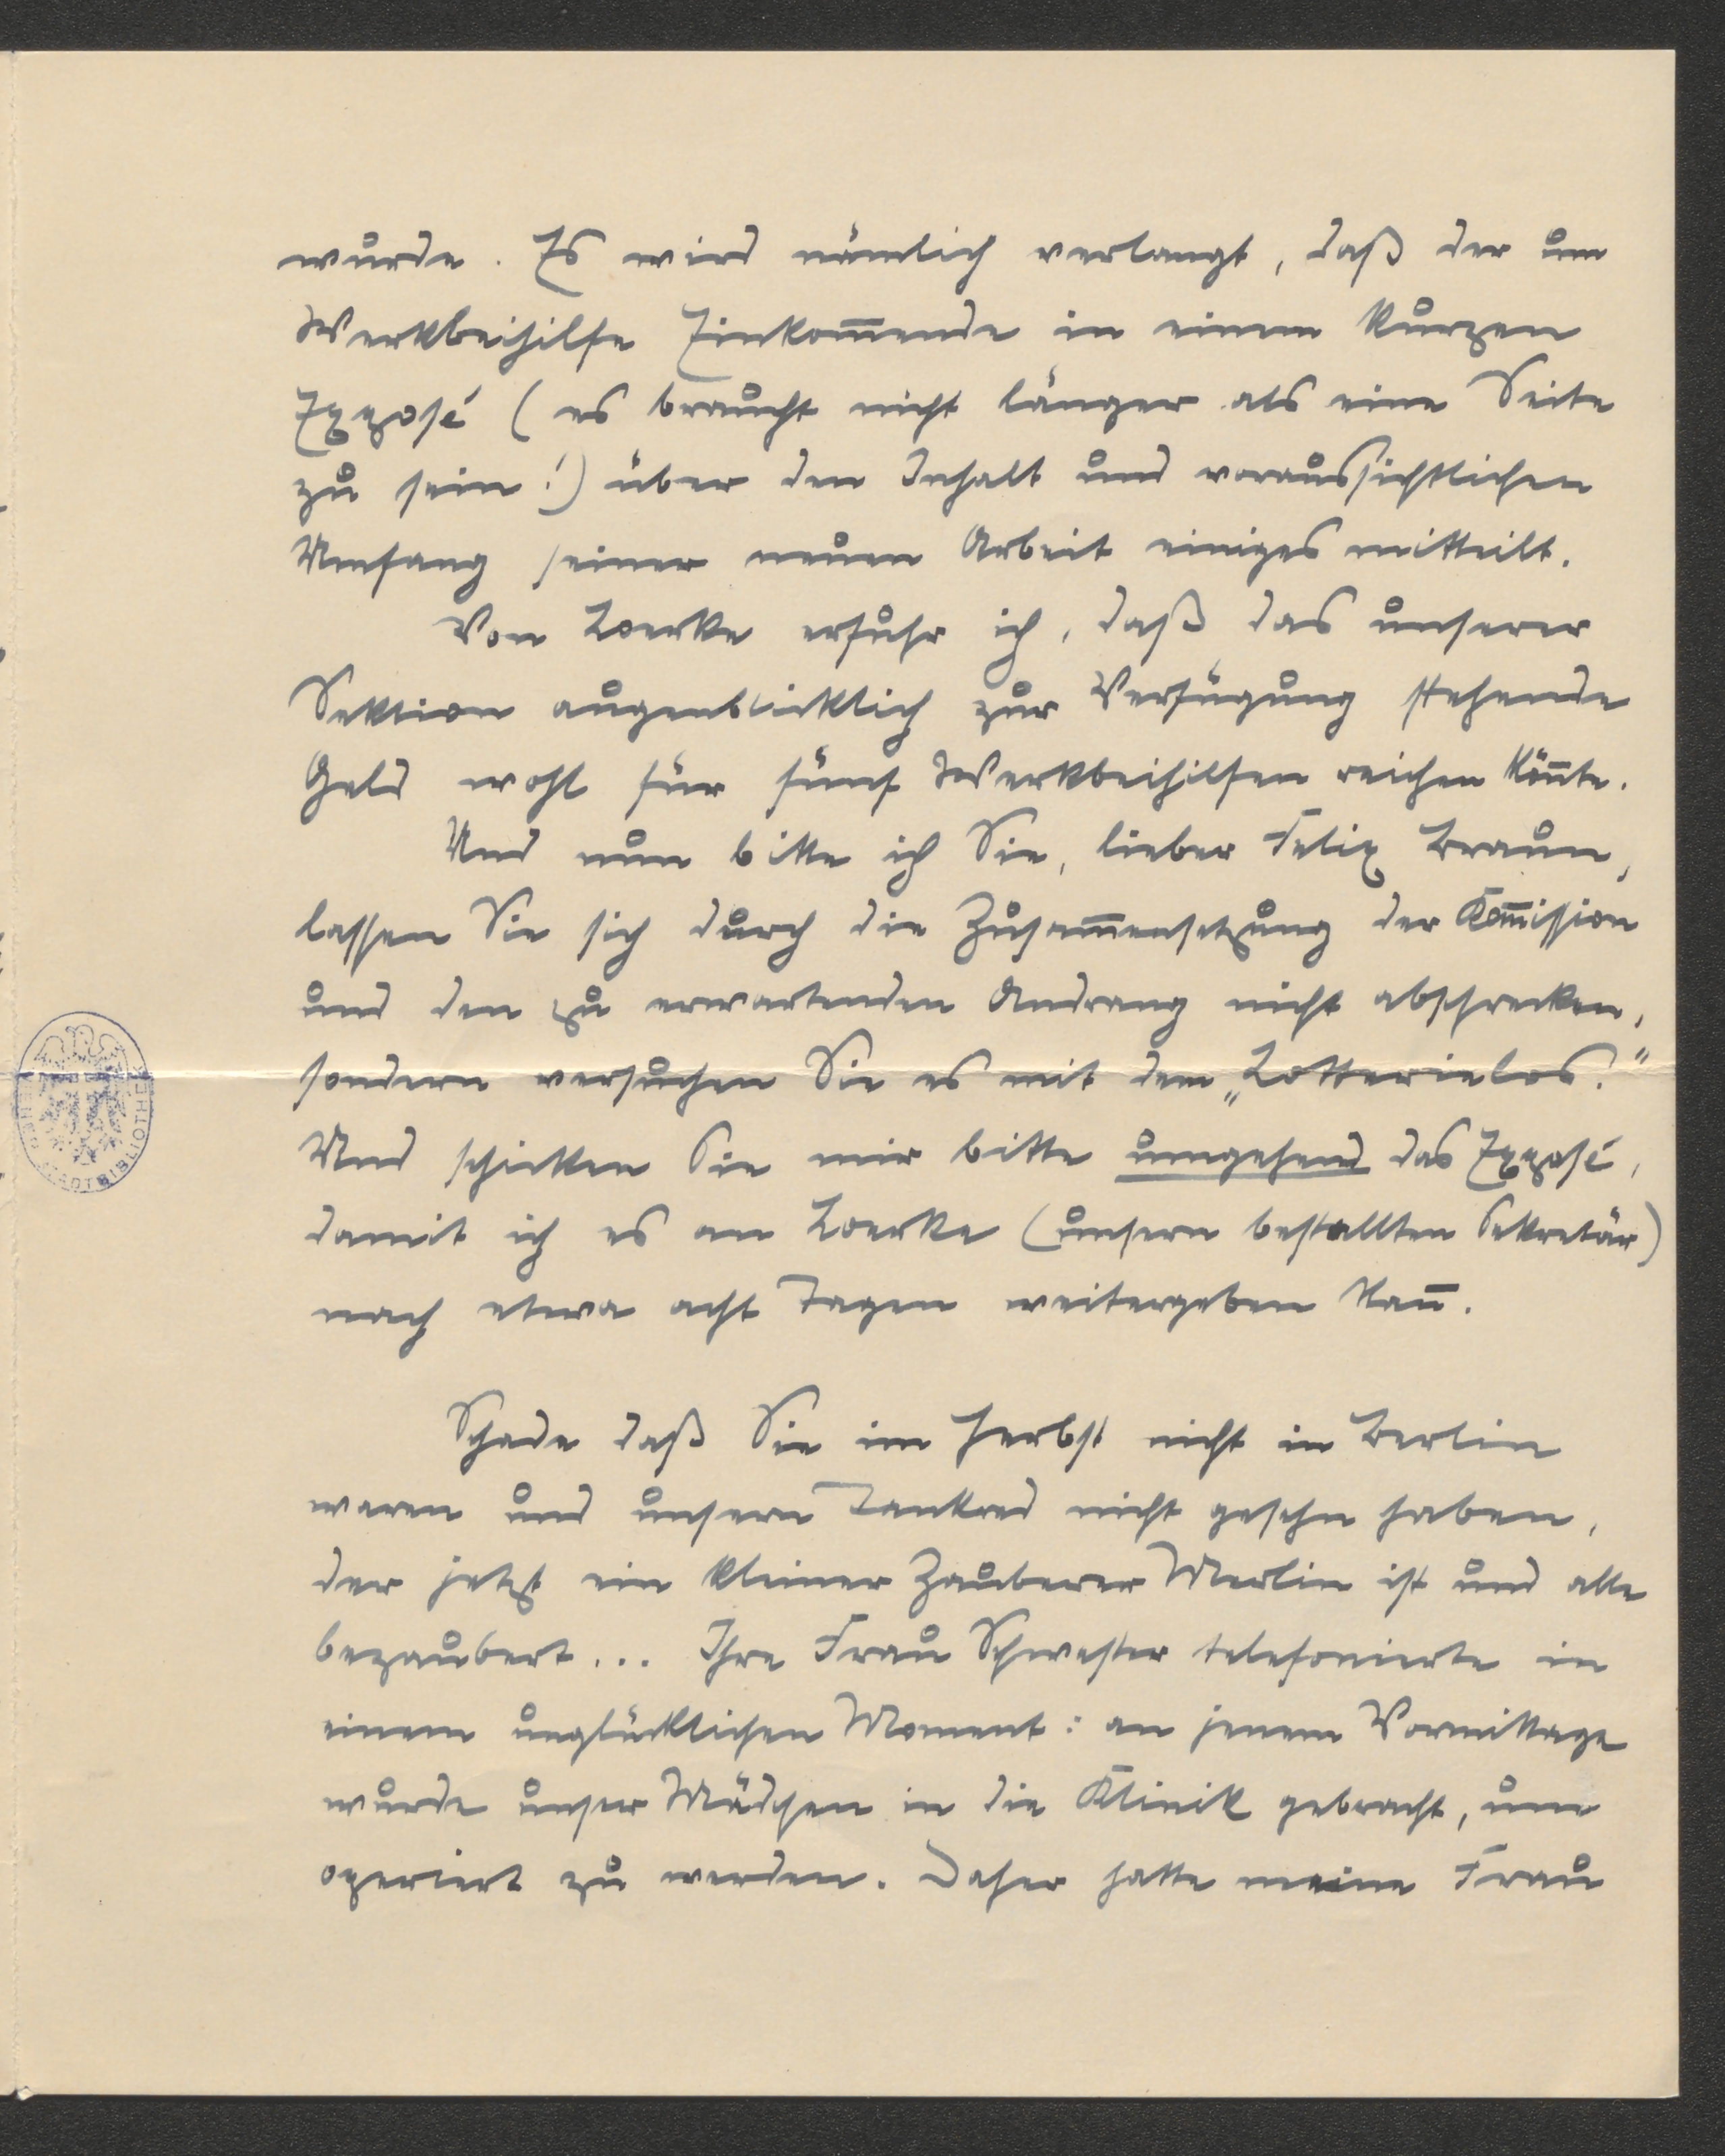 wurde. Es wird nämlich verlangt, daß der um
Werkbeihilfe Einkom̅ende in einem kurzen
Exposé (es braucht nicht länger als eine Seite
zu sein!) über den Inhalt und voraussichtlichen
Umfang seiner neuen Arbeit einiges mitteilt.
Von Loerke erfuhr ich, daß das unserer
Sektion augenblicklich zur Verfügung stehende
Geld wohl für fünf Werkbeihilfen reichen kön̅te.
Und nun bitte ich Sie, lieber Felix Braun,
lassen Sie sich durch die Zusam̅ensetzung der Kom̅ission
und den zu erwartenden Andrang nicht abschrecken,
sondern versuchen Sie es mit dem „Lotterielos!“
Und schicken Sie mir bitte umgehend das Exposé,
damit ich es an Loerke (unsern bestallten Sekretär)
nach etwa acht Tagen weitergeben kan̅.
Schade daß Sie im Herbst nicht in Berlin
waren und unsern Tankred nicht gesehn haben,
der jetzt ein kleiner Zauberer Merlin ist und alle
bezaubert... Ihre Frau Schwester telefonierte in
einem unglücklichen Moment: an jenem Vormittage
wurde unser Mädchen in die Klinik gebracht, um
operiert zu werden. Daher hatte meine Frau
WIENER STADTBIBLIOTHEK